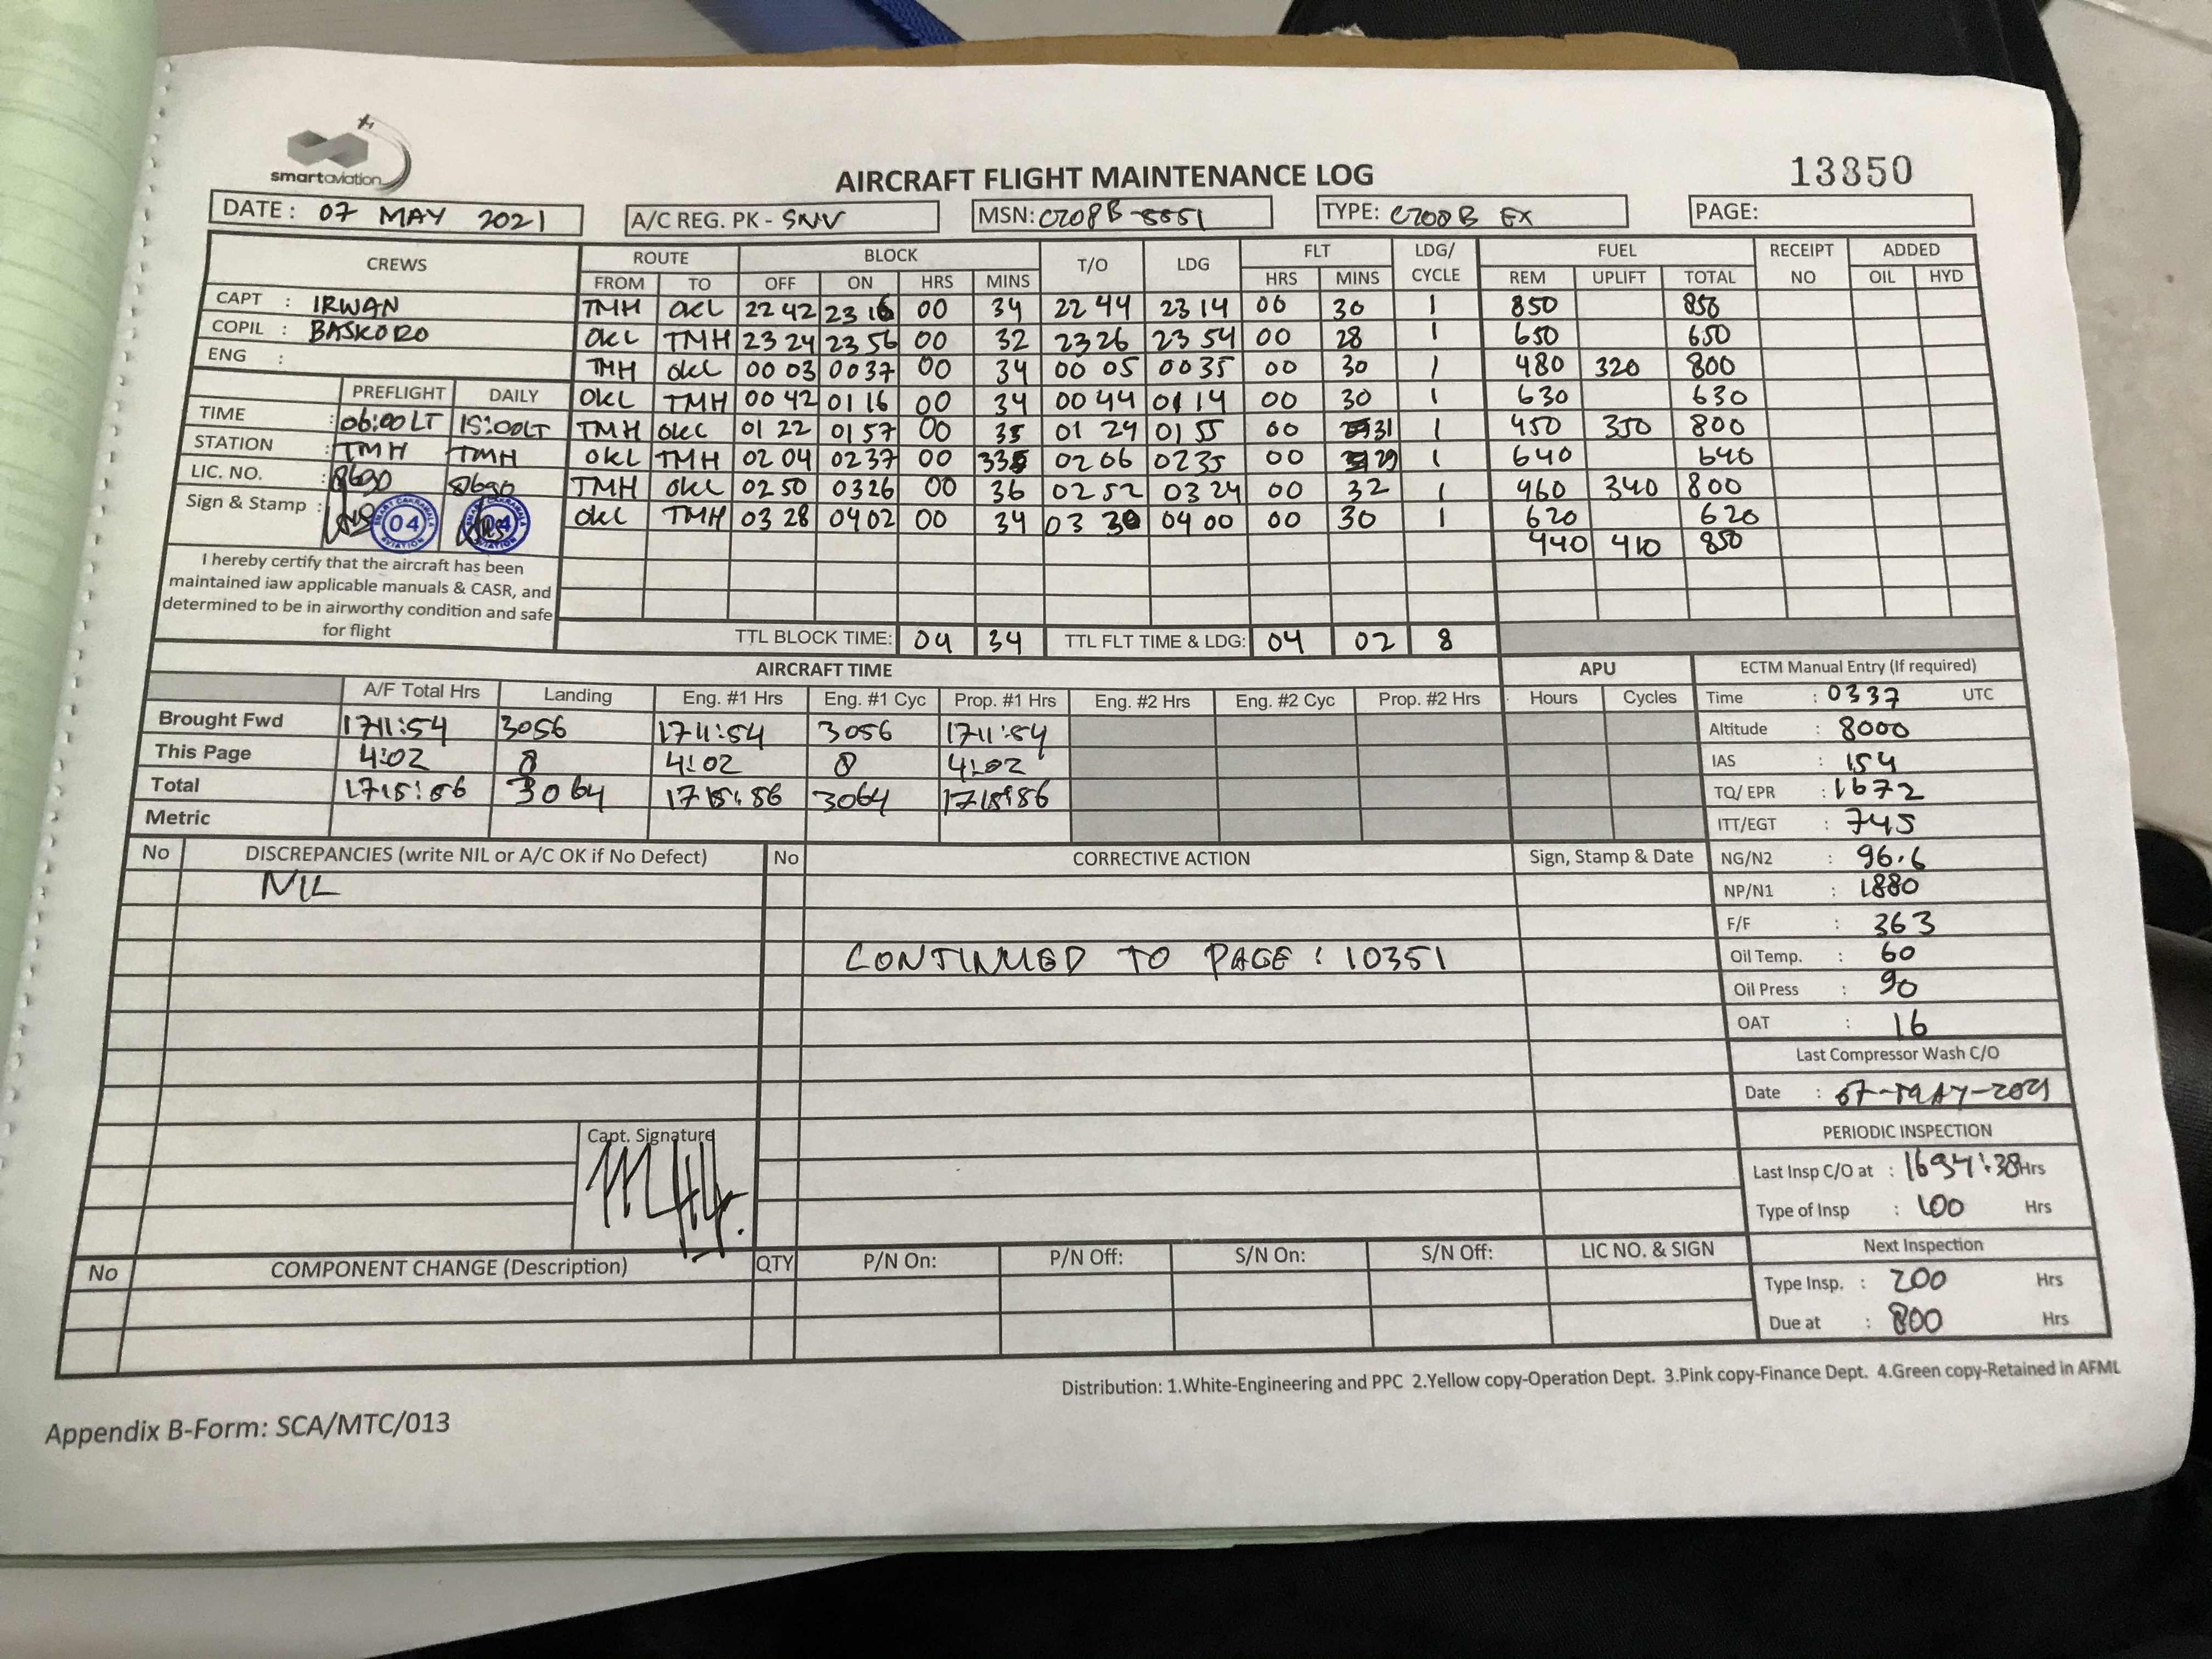 smartaviation
AIRCRAFT FLIGHT MAINTENANCE LOG
13850
DATE: 07 MAY 2021 A/C REG. PK - SNV MSN: C208B-5551 TYPE: C208B EX PAGE:
CREWS ROUTE BLOCK T/O LDG FLT LDG/CYCLE FUEL RECEIPT NO ADDED
FROM TO OFF ON HRS MINS HRS MINS REM UPLIFT TOTAL OIL HYD
CAPT : IRWAN
COPIL : BASKORO
ENG :
TMH OKL 22 42 23 16 00 34 22 44 23 14 00 30 1 850 850
OKL TMH 23 24 23 56 00 32 23 26 23 54 00 28 1 650 650
TMH OKL 00 03 00 37 00 34 00 05 00 35 00 30 1 480 320 800
OKL TMH 00 42 01 16 00 34 00 44 01 14 00 30 1 630 630
TMH OKL 01 22 01 57 00 35 01 24 01 55 00 31 1 450 350 800
OKL TMH 02 04 02 37 00 33 02 06 02 35 00 29 1 640 640
TMH OKL 02 50 03 26 00 36 02 52 03 24 00 32 1 460 340 800
OKL TMH 03 28 04 02 00 34 03 30 04 00 00 30 1 620 620
440 410 850
PREFLIGHT DAILY
TIME : 06:00LT 15:00LT
STATION : TMH TMH
LIC. NO. : 8690 8690
Sign & Stamp : 04 04
I hereby certify that the aircraft has been
maintained iaw applicable manuals & CASR, and
determined to be in airworthy condition and safe
for flight
TTL BLOCK TIME: 04 34 TTL FLT TIME & LDG: 04 02 8
AIRCRAFT TIME APU
A/F Total Hrs Landing Eng. #1 Hrs Eng. #1 Cyc Prop. #1 Hrs Eng. #2 Hrs Eng. #2 Cyc Prop. #2 Hrs Hours Cycles
Brought Fwd 1711:54 3056 1711:54 3056 1711:54
This Page 4:02 8 4:02 8 4:02
Total 1715:56 3064 1715:56 3064 1715:56
Metric
ECTM Manual Entry (If required)
Time : 0337 UTC
Altitude : 8000
IAS : 154
TQ/ EPR : 1672
ITT/EGT : 745
NG/N2 : 96.6
NP/N1 : 1880
F/F : 363
Oil Temp. : 60
Oil Press : 90
OAT : 16
Last Compressor Wash C/O
Date : 07-MAY-2021
PERIODIC INSPECTION
Last Insp C/O at : 1694:38 Hrs
Type of Insp : 100 Hrs
Next Inspection
Type Insp. : 200 Hrs
Due at : 800 Hrs
No DISCREPANCIES (write NIL or A/C OK if No Defect) No CORRECTIVE ACTION Sign, Stamp & Date
NIL
CONTINUED TO PAGE : 10351
Capt. Signature
No COMPONENT CHANGE (Description) QTY P/N On: P/N Off: S/N On: S/N Off: LIC NO. & SIGN
Distribution: 1.White-Engineering and PPC 2.Yellow copy-Operation Dept. 3.Pink copy-Finance Dept. 4.Green copy-Retained in AFML
Appendix B-Form: SCA/MTC/013